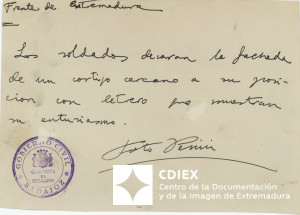 Frente de Extremadura
Los soldados decoran la fachada
de un cortijo cercano a su posi-
cion con letrero que muestran
su entusiasmo.
Foto
GOBIERNO CIVIL
BADAJOZ
CDIEX
Centro de la Documentación
y de la Imagen de Extremadura